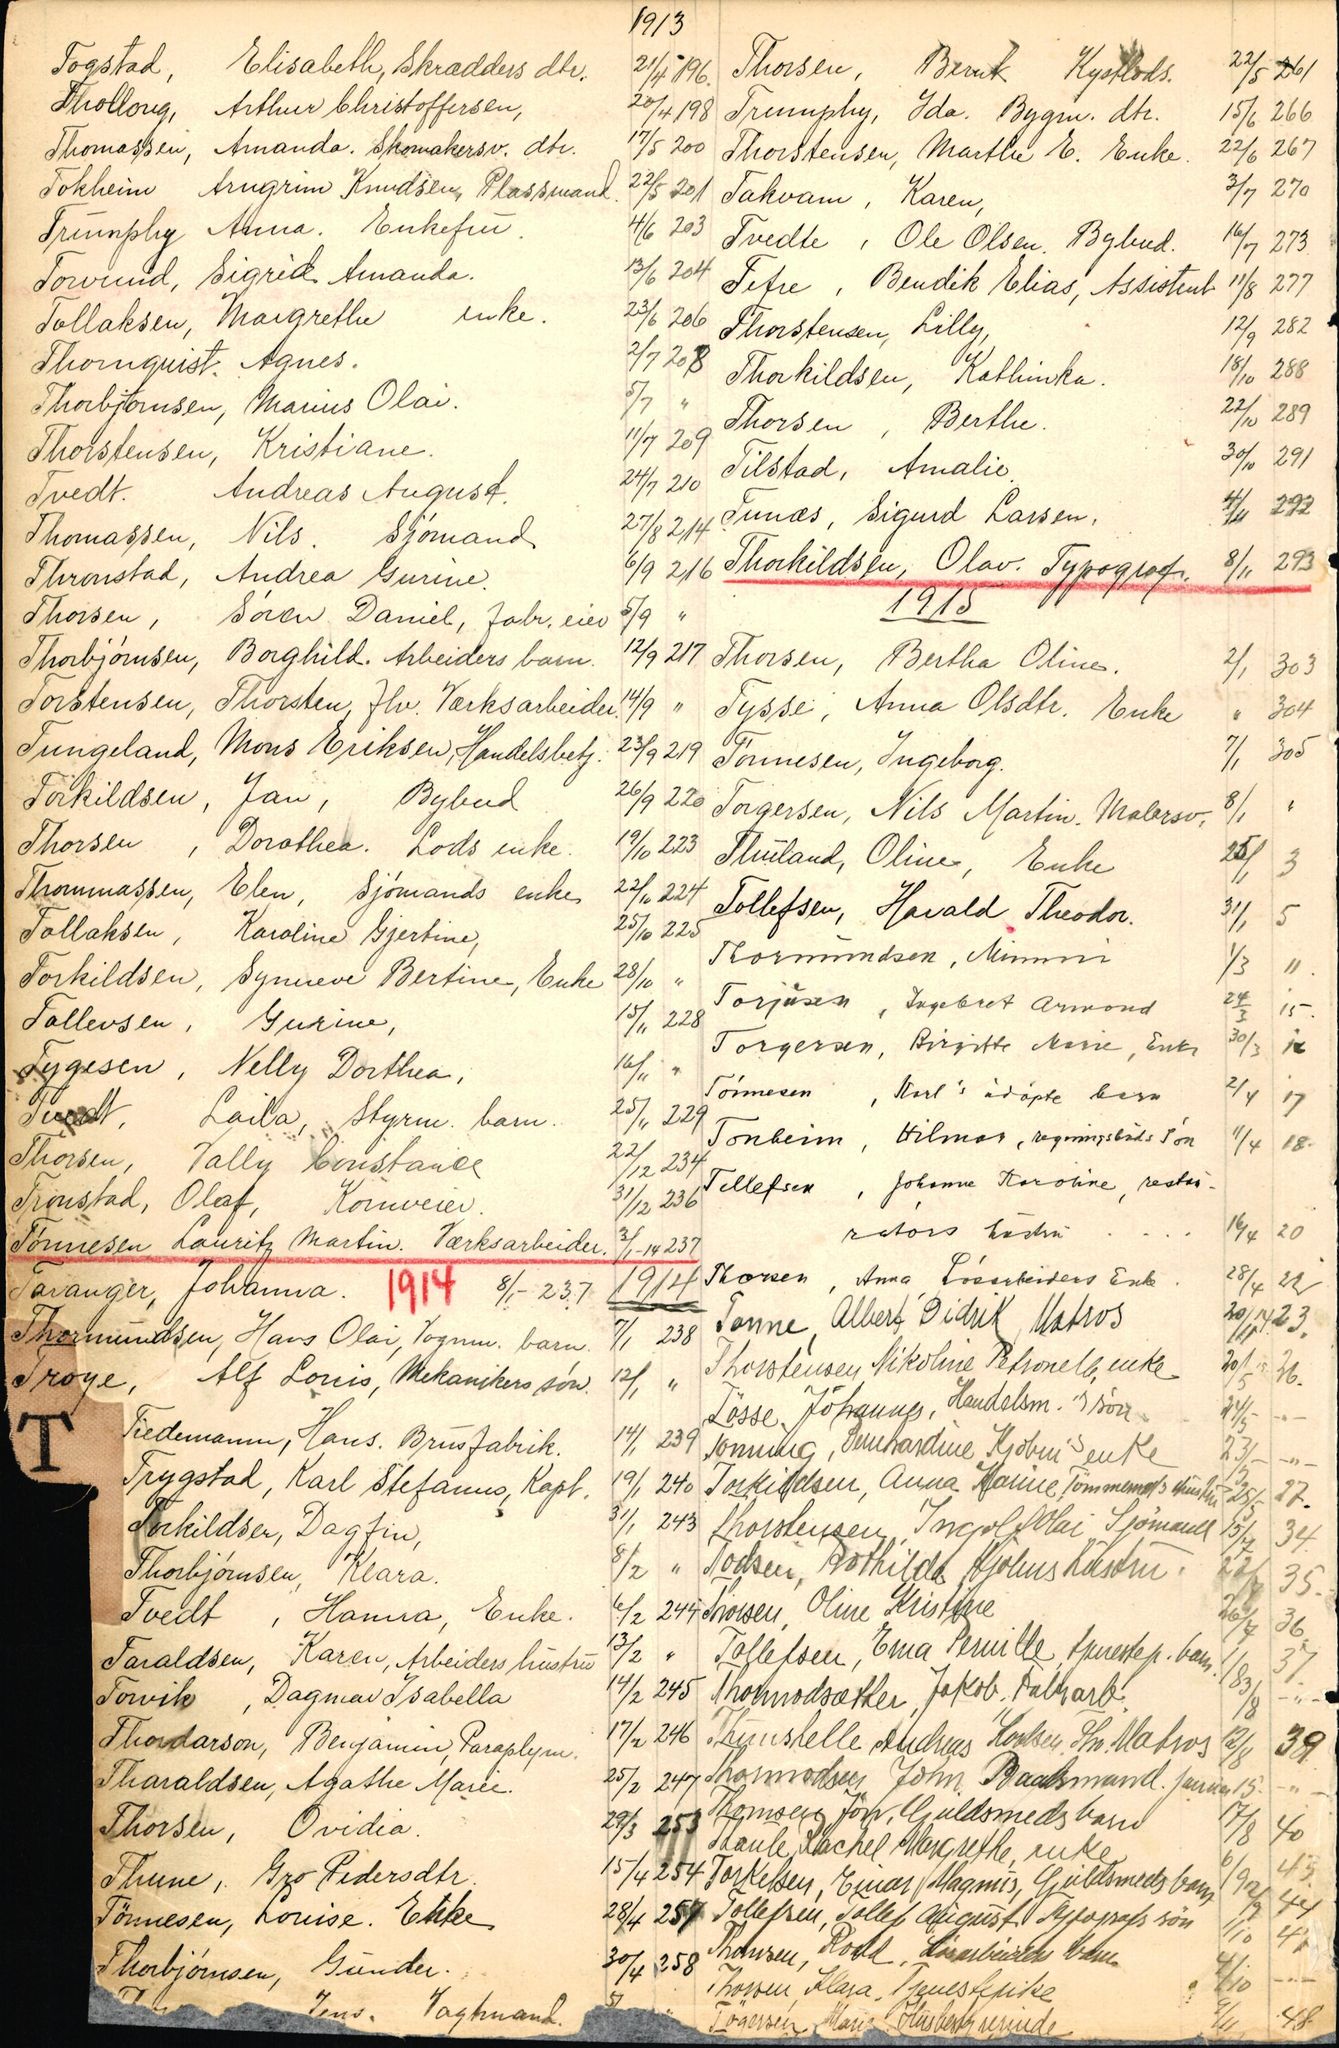 1913
Togstad, Elisabeth, Skrædders dtr. 21/4 196.
Thollong, Arthur Christoffersen, 20/4 198
Thomassen, Amanda. Skomakersv. dtr. 17/5 200
Tokheim Arngrim Knudsen, Plassmand. 22/5 201
Triumphy Anna. Enkefru. 4/6 203
Torvund, Sigrid Amanda. 13/6 204
Tollaksen, Margrethe enke. 23/6 206
Thornquist. Agnes. 2/7 208
Thorbjørnsen, Marius Olai. 5/7 "
Thorstensen, Kristiane. 11/7 209
Tvedt. Andreas August. 24/7 210
Thomassen, Nils. Sjømand 27/8 214
Thronstad, Andrea Gurine. 6/9 216
Thorsen, Søren Daniel, fabr. eier 5/9 "
Thorbjørnsen, Borghild. Arbeiders barn. 12/9 217
Torstensen, Thorsten, fhv. Værksarbeider. 14/9 "
Tungeland, Mons Eriksen, Handelsbetj. 23/9 219
Torkildsen, Jan, Bybud 26/9 220
Thorsen, Dorothea. Lods enke. 19/10 223
Thommassen, Elen, Sjømands enke 22/10 224
Tollaksen, Karoline Gjertine, 25/10 225
Torkildsen, Synneve Bertine, Enke 28/10 "
Tollevsen, Gurine, 15/11 228
Tygesen, Nelly Dorthea, 16/11 "
Tvedt, Laila, Styrm. barn. 25/11 229
Thorsen, Vally Constance 22/12 234
Tronstad, Olaf, Kornveier. 31/12 236
Tønnesen Lauritz Martin. Værksarbeider. 3/1-14 237
Taranger, Johanna. 1914 8/1- 237
1914
Thormundsen, Hans Olai, Vognm. barn. 7/1 238
Troye, Alf Louis, Mekanikers søn. 12/1 "
T
Tiedemann, Hans. Brusfabrik. 14/1 239
Trygstad, Karl Stefanus, Kapt. 19/1 240
Torkildsen, Dagfin, 31/1 243
Thorbjørnsen, Klara. 8/2 "
Tvedt, Hanna, Enke. 6/2 244
Taraldsen, Karen, Arbeiders hustru 13/2 "
Torvik, Dagmar Isabella 14/2 245
Thordarson, Benjamin, Paraplym. 17/2 246
Tharaldsen, Agathe Marie. 25/2 247
Thorsen, Ovidia. 29/3 253
Thune, Gro Pedersdtr. 15/4 254
Tønnesen, Louise. Enke 28/4 257
Thorbjørnsen, Gunder. 30/4 258
Jens. Vagtmand.
Thorsen, Bernt Kystlods. 22/5 261
Triumphy, Ida. Bygm. dtr. 15/6 266
Thorstensen, Marthe E. Enke. 22/6 267
Takvam, Karen, 3/7 270
Tvedte, Ole Olsen. Bybud. 16/7 273
Tefre, Bendik Elias, Assistent 11/8 277
Thorstensen, Lilly, 12/9 282
Thorkildsen, Kathinka. 18/10 288
Thorsen, Berthe. 22/10 289
Tilstad, Amalie. 30/10 291
Tunæs, Sigurd Larsen. 4/11 292
Thorkildsen, Olav. Typograf. 8/11 293
1915
Thorsen, Bertha Oline. 2/1 303
Tysse, Anna Olsdtr. Enke " 304
Tønnesen, Ingeborg. 7/1 305
Torgersen, Nils Martin. Malersv. 8/1 "
Thuland, Oline, Enke 25/1 3
Tollefsen, Harald Theodor. 31/1 5
Thormundsen, Mimmi 1/3 11.
Torjusen, Ingebret Armond 24/3 15.
Torgersen, Birgitte Marie, Enke 30/3 16
Tønnesen, Karl's udøpte barn 2/4 17
Tonheim, Hilmar, regningsbuds Søn 11/4 18.
Tellefsen, Johanne Karoline, restau-
ratørs hustru .... 16/4 20
Thorsen, Anna Løsarbeiders Enke. 28/4 22
Tonne, Albert Didrik Matros 23.
Thorstensen Nikoline Petronella, enke 20/5 26.
Tøsse, Johannes, Handelsm.'s søn 24/5 -"-
Tonning, Bernhardine Kjøbm's enke 23/5 -"-
Torkildsen, Anna Marine, Tømmermds Hustru 25/5 27.
Thorstensen, Ingolf Olai Sjømand 15/7 34.
Bothilde Kjøbms Hustru. 35.
Thorsen, Oline Kristine 26/7 36
Tollefsen, Erna Pernille, tjenestep. barn. 1/8 37.
Thormodsæther, Jakob, Fabr.arb. 3/8 -"-
Andreas Matros 12/8 39
Thormodsen John Baadsmand. 15. -"-
Thomsen Guldsmeds barn 17/8 40
Rachel Margrethe, enke 6/9 43.
Torkelsen, Einar Magnus, Guldsmeds barn 44
Tollefsen, Tollef August Typografs søn 1/10
Thomsen, barn 4/10 -"-
Thorsen, Klara, Tjenestepike
Marie Husbestyrerinde 48.